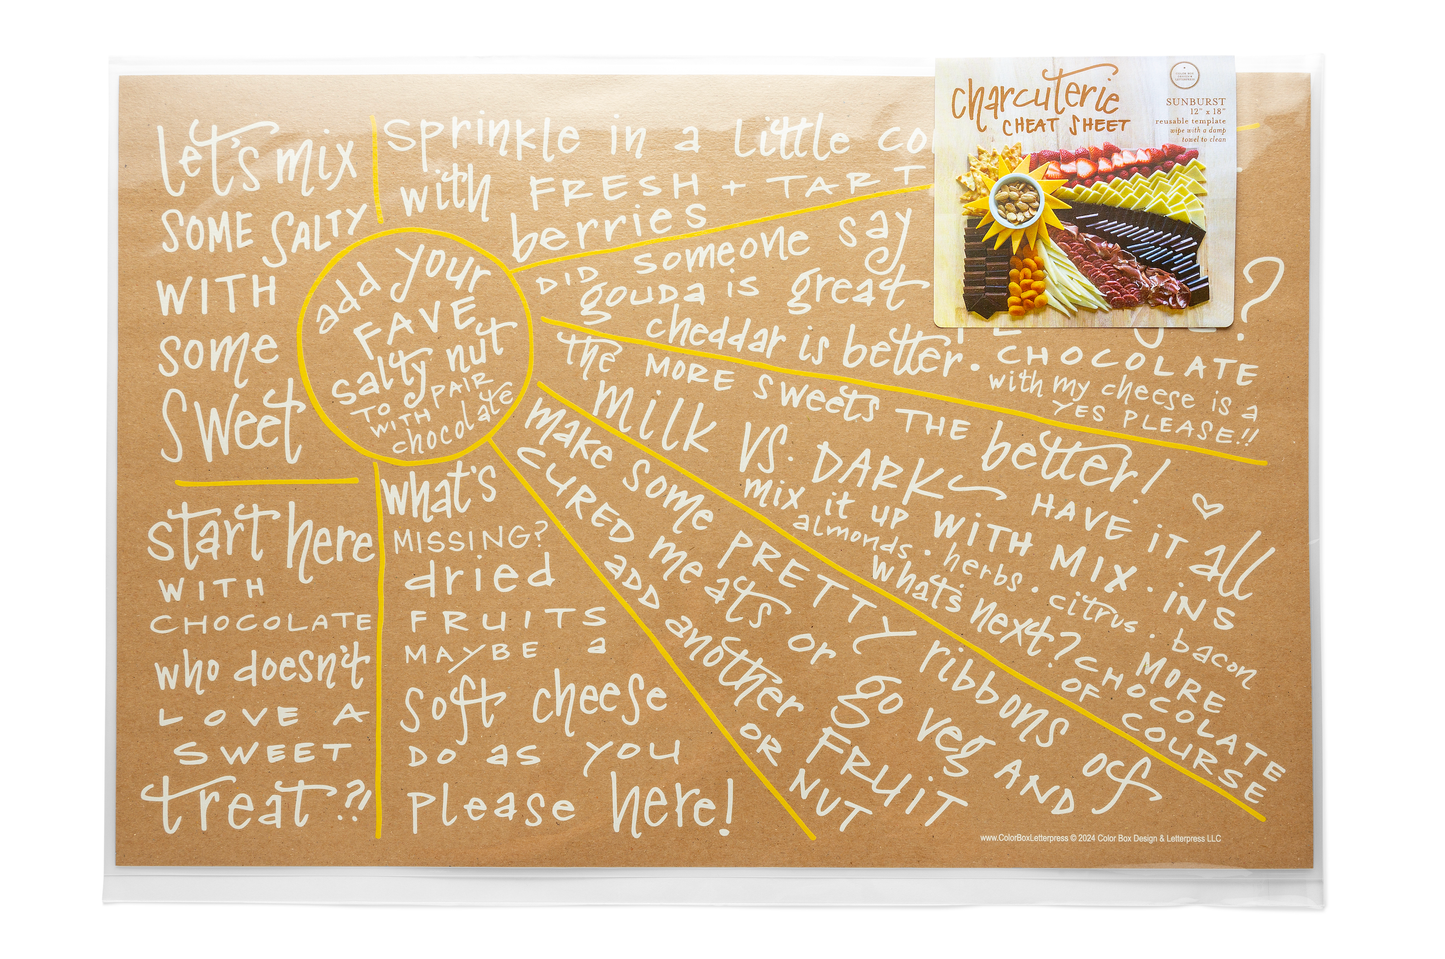 let's mix
SOME SALTY
WITH
some
sweet
sprinkle in a little co
with FRESH + TART
berries
DID someone say
gouda is great
cheddar is better.
?
CHOCOLATE
with my cheese is a
YES PLEASE!!
add your
FAVE
salty nut
TO PAIR
WITH
chocolate
the MORE sweets THE better!
milk VS. DARK HAVE it all
mix it up WITH MIX·INS
almonds · herbs · citrus · bacon
what's next? MORE
CHOCOLATE
OF COURSE
make some PRETTY ribbons of
CURED meats or go veg AND
ADD another FRUIT
OR NUT
what's
MISSING?
dried
FRUITS
MAYBE a
soft cheese
DO AS YOU
please here!
start here
WITH
CHOCOLATE
who doesn't
LOVE A
SWEET
treat?!
charcuterie
CHEAT SHEET
SUNBURST
12" x 18"
reusable template
wipe with a damp
towel to clean
www.ColorBoxLetterpress © 2024 Color Box Design & Letterpress LLC